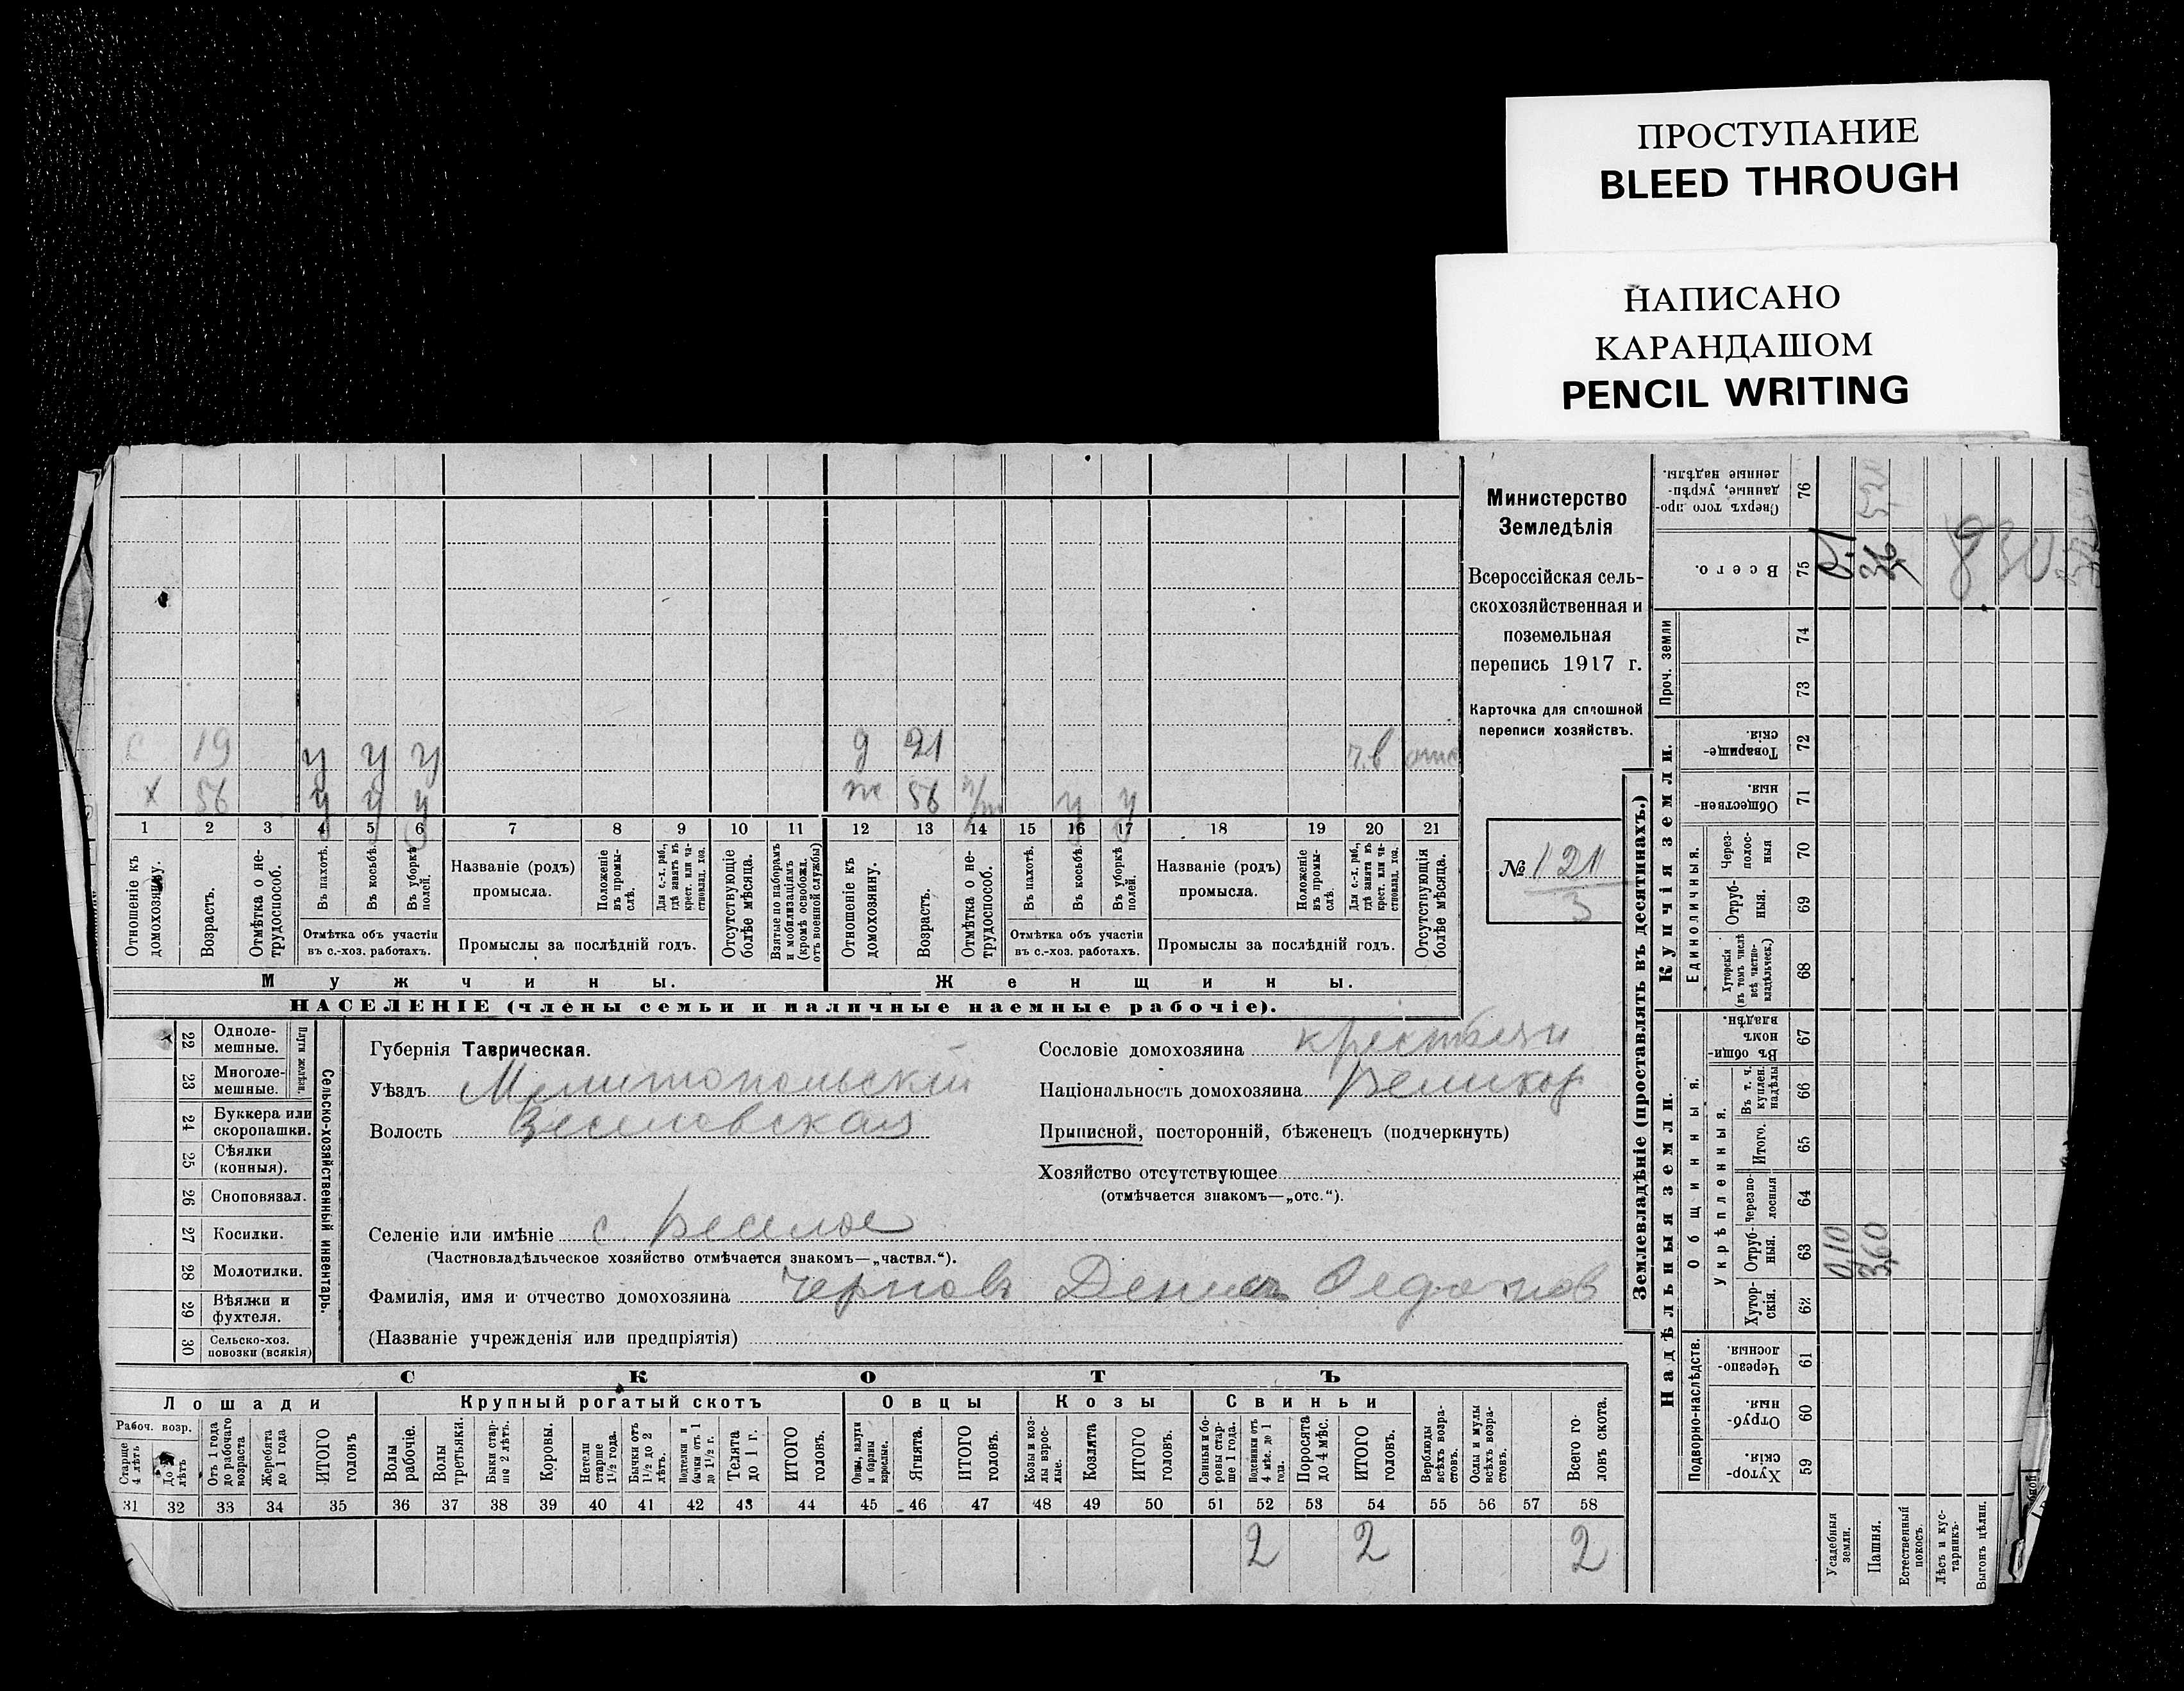 ПРОСТУПАНИЕ
BLEED THROUGH
НАПИСАНО
КАРАНДАШОМ
PENCIL WRITING
Министерство
Земледѣлія
Всероссійская сель-
скохозяйственная и
поземельная
перепись 1917 г.
Карточка для сплошной
переписи хозяйствъ.
№ 121
3
с 19 у у у д 21 ч.в отс
х 56 у у у ж 56 н/т у у
1 2 3 4 5 6 7 8 9 10 11 12 13 14 15 16 17 18 19 20 21
Отношеніе къ домохозяину.
Возрастъ.
Отмѣтка о не-трудоспособ.
Въ пахотѣ.
Въ косьбѣ.
Въ уборкѣ полей.
Названіе (родъ) промысла.
Положеніе въ промы-слѣ.
Для с.-х. раб., гдѣ занятъ въ крест. или ча-стновлад. хоз.
Отсутствующіе болѣе мѣсяца.
Взятые по наборамъ и мобилизаціямъ (кромѣ освобожд. отъ военной службы)
Отношеніе къ домохозяину.
Возрастъ.
Отмѣтка о не-трудоспособ.
Въ пахотѣ.
Въ косьбѣ.
Въ уборкѣ полей.
Названіе (родъ) промысла.
Положеніе въ промы-слѣ.
Для с.-х. раб., гдѣ занятъ въ крест. или ча-стновлад. хоз.
Отсутствующія болѣе мѣсяца.
Отмѣтка объ участіи въ с.-хоз. работахъ.
Промыслы за послѣдній годъ.
Отмѣтка объ участіи въ с.-хоз. работахъ.
Промыслы за послѣдній годъ.
Мужчины. Женщины.
НАСЕЛЕНІЕ (члены семьи и наличные наемные рабочіе).
Сельско-хозяйственный инвентарь.
Плуги желѣзн.
22 Одноле-мешные.
23 Многоле-мешные.
24 Буккера или скоропашки.
25 Сѣялки (конныя).
26 Сноповязал.
27 Косилки.
28 Молотилки.
29 Вѣялки и фухтеля.
30 Сельско-хоз. повозки (всякія)
Губернія Таврическая.
Уѣздъ Мелитопольскій
Волость Веселовская
Селеніе или имѣніе с. Веселое
(Частновладѣльческое хозяйство отмѣчается знакомъ—„частвл.“).
Фамилія, имя и отчество домохозяина Черновъ Денис Федотов
(Названіе учрежденія или предпріятія)
Сословіе домохозяина крестьян
Національность домохозяина Великор
Приписной, посторонній, бѣженецъ (подчеркнуть)
Хозяйство отсутствующее
(отмѣчается знакомъ—„отс.“).
СКОТЪ
Лошади Крупный рогатый скотъ Овцы Козы Свиньи
Рабоч. возр.
Старше 4 лѣтъ
До 4 лѣтъ
Отъ 1 года до рабочаго возраста
Жеребята до 1 года
ИТОГО головъ
Волы рабочіе.
Волы третьяки.
Быки стар-ше 2 лѣтъ.
Коровы.
Нетели старше 1½ года.
Бычки отъ 1½ до 2 лѣтъ.
Нетелки и бычки отъ 1 до 1½ г.
Телята до 1 г.
ИТОГО головъ.
Овцы, валухи и бараны взрослые.
Ягнята.
ИТОГО головъ.
Козы и коз-лы взрос-лые.
Козлята
ИТОГО головъ.
Свиньи и бо-ровы стар-ше 1 года.
Подсвинки отъ 4 мѣс. до 1 года.
Поросята до 4 мѣс.
ИТОГО головъ.
Верблюды всѣхъ возра-стовъ.
Ослы и мулы всѣхъ возра-стовъ.
Всего го-ловъ скота.
31 32 33 34 35 36 37 38 39 40 41 42 43 44 45 46 47 48 49 50 51 52 53 54 55 56 57 58
2 2 2
Землевладѣніе (проставлять въ десятинахъ.)
Надѣльныя земли. Купчія земли. Проч. земли
Подворно-наслѣдств. Общинныя. Единоличныя.
Укрѣпленныя.
Хутор-скія. 59
Отруб-ныя. 60
Черезпо-лосныя. 61
Хутор-скія. 62
Отруб-ныя. 63
Черезпо-лосныя 64
Итого. 65
Въ т. ч. куплен. надѣлы 66
Въ общин-номъ владѣн. 67
Хуторскія (въ томъ числѣ всѣ частно-владѣльческ.) 68
Отруб-ныя. 69
Через-полос-ныя 70
Обществен-ныя. 71
Товарище-скія. 72
73
74
Всего. 75
Сверхъ того про-данные, укрѣп-ленные надѣлы. 76
Усадебныя земли. 0,10
Пашня. 3,60 36
Естественный покосъ.
Лѣсъ и кус-тарникъ.
Выгонъ цѣлин.
830